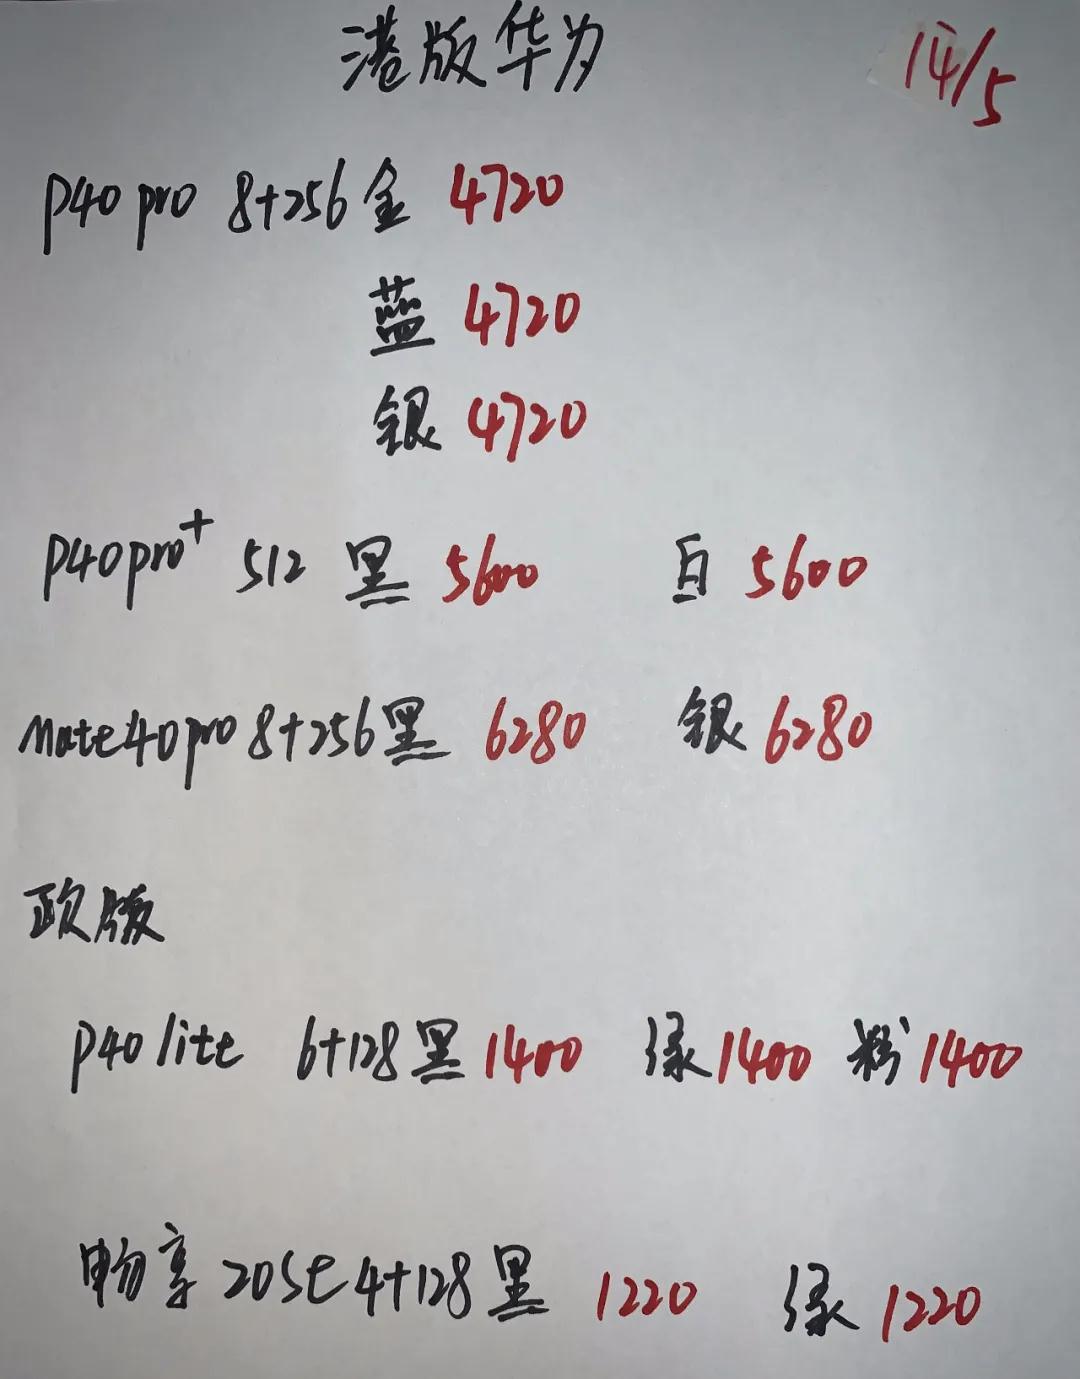 港版华为 14/5
P40 pro 8+256 金 4720
蓝 4720
银 4720
P40pro+ 512 黑 5600 白 5600
Mate40pro 8+256 黑 6280 银 6280
欧版
P40 lite 6+128 黑 1400 绿 1400 粉 1400
畅享 20Se 4+128 黑 1220 绿 1220